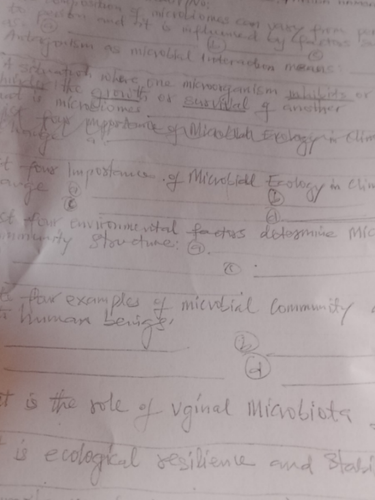 composition of microbiomes can vary from per
to person and it is influenced by factors su
(b)
(c)
Antagonism as microbial interaction means:
A situation where one microorganism inhibits or
the growth or survival of another
is microbiomes
four importance of Microbial Ecology in Clim
four Importances of Microbial Ecology in Clim
ange (a) (b)
(c) (d)
four environmental factors determine Mic
ommunity Structure: (a).
(c) :
four examples of microbial Community
human benigs.
(b)
(d)
t is the role of vginal Microbiota
is ecological resilience and Stabi